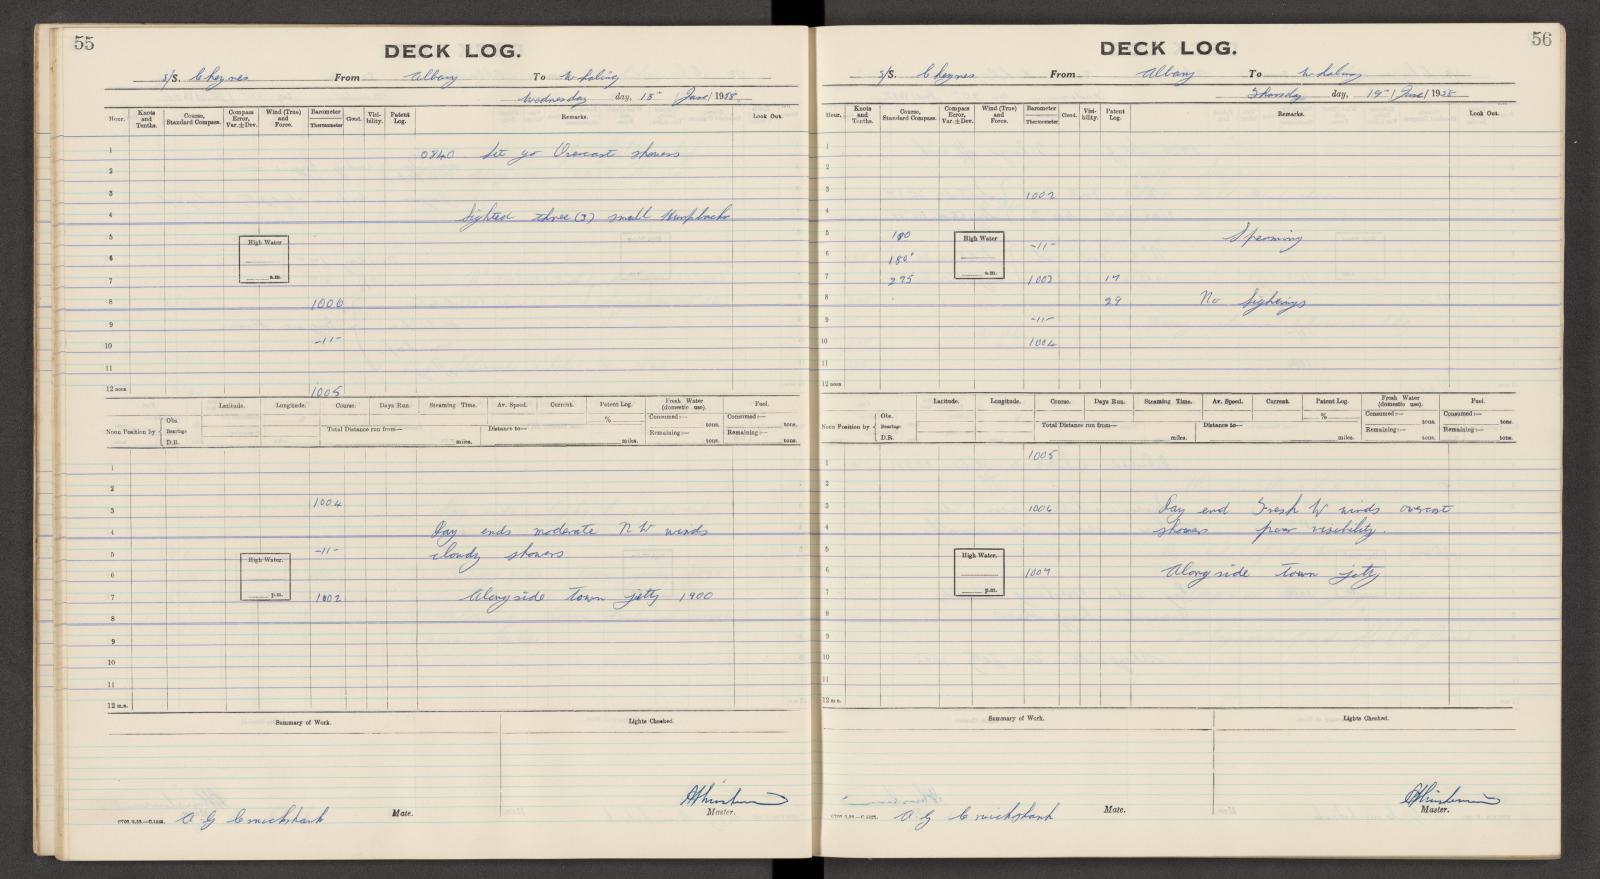 55
DECK LOG.
S/S. Cheynes From Albany To Whaling
Wednesday day, 18th June 1958.
Hour. Knots and Tenths. Course, Standard Compass. Compass Error, Var.±Dev. Wind (True) and Force. Barometer Thermometer Cloud. Visibility. Patent Log. Remarks. Look Out.
1 0840 Let go Overcast showers
2
3
4 Sighted three (3) small Humpbacks
5
High Water
6
a.m.
7
8 1006
9
10 -11-
11
12 noon 1005
Latitude. Longitude. Course. Days Run. Steaming Time. Av. Speed. Current. Patent Log. Fresh Water (domestic use). Fuel.
Noon Position by { Obs. Bearings D.R.
% Consumed:— tons. Consumed:— tons.
Total Distance run from— miles. Distance to— miles. Remaining:— tons. Remaining:— tons.
1
2
3 1004
4 Day ends moderate NW winds
5 -11- cloudy showers
High Water.
6
p.m.
7 1002 Alongside town jetty 1900
8
9
10
11
12 m.n.
Summary of Work. Lights Checked.
A G Cruickshank Mate.
Master.
56
DECK LOG.
S/S. Cheynes From Albany To Whaling
Thursday day, 19th June 1958
Hour. Knots and Tenths. Course, Standard Compass. Compass Error, Var.±Dev. Wind (True) and Force. Barometer Thermometer Cloud. Visibility. Patent Log. Remarks. Look Out.
1
2
3 1002
4
5 180 -11- Sperming
High Water
6 180°
a.m.
7 275 1003 17
8 29 No Sightings
9 -11-
10 1004
11
12 noon
Latitude. Longitude. Course. Days Run. Steaming Time. Av. Speed. Current. Patent Log. Fresh Water (domestic use). Fuel.
Noon Position by { Obs. Bearings D.R.
% Consumed:— tons. Consumed:— tons.
Total Distance run from— miles. Distance to— miles. Remaining:— tons. Remaining:— tons.
1 1005
2
3 1006 Day end Fresh W winds overcast
4 showers poor visibility.
5
High Water.
6 1007 Alongside town jetty
p.m.
7
8
9
10
11
12 m.n.
Summary of Work. Lights Checked.
A G Cruickshank Mate.
Master.